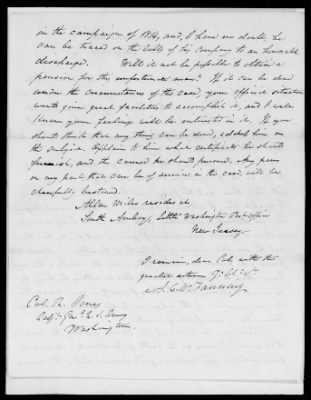 in the campaign of 1814, and, I have no doubt, he
can be traced on the Rolls of his Company to an honorable
discharge. Will it not be possible to obtain a
pension for this unfortunate man? If it can be done
under the circumstances of the case, your official situation
will give great facilities to accomplish it, and I well
know your feelings will be interested in it. If you
should think that any thing can be done, address him on
the subject. Explain to him what certificates he should
furnish, and the course he should pursue. Any pains
on my part that can be of service in the case, will be
cheerfully bestowed.
Allen Miles resides at
South Amboy, Little Washington Post Office
New Jersey
I remain, dear Col. with the
greatest esteem Yr. Ob. St.
A.C.W. Fanning
Col. R. Jones
Adjt. Genl. U.S. Army
Washington